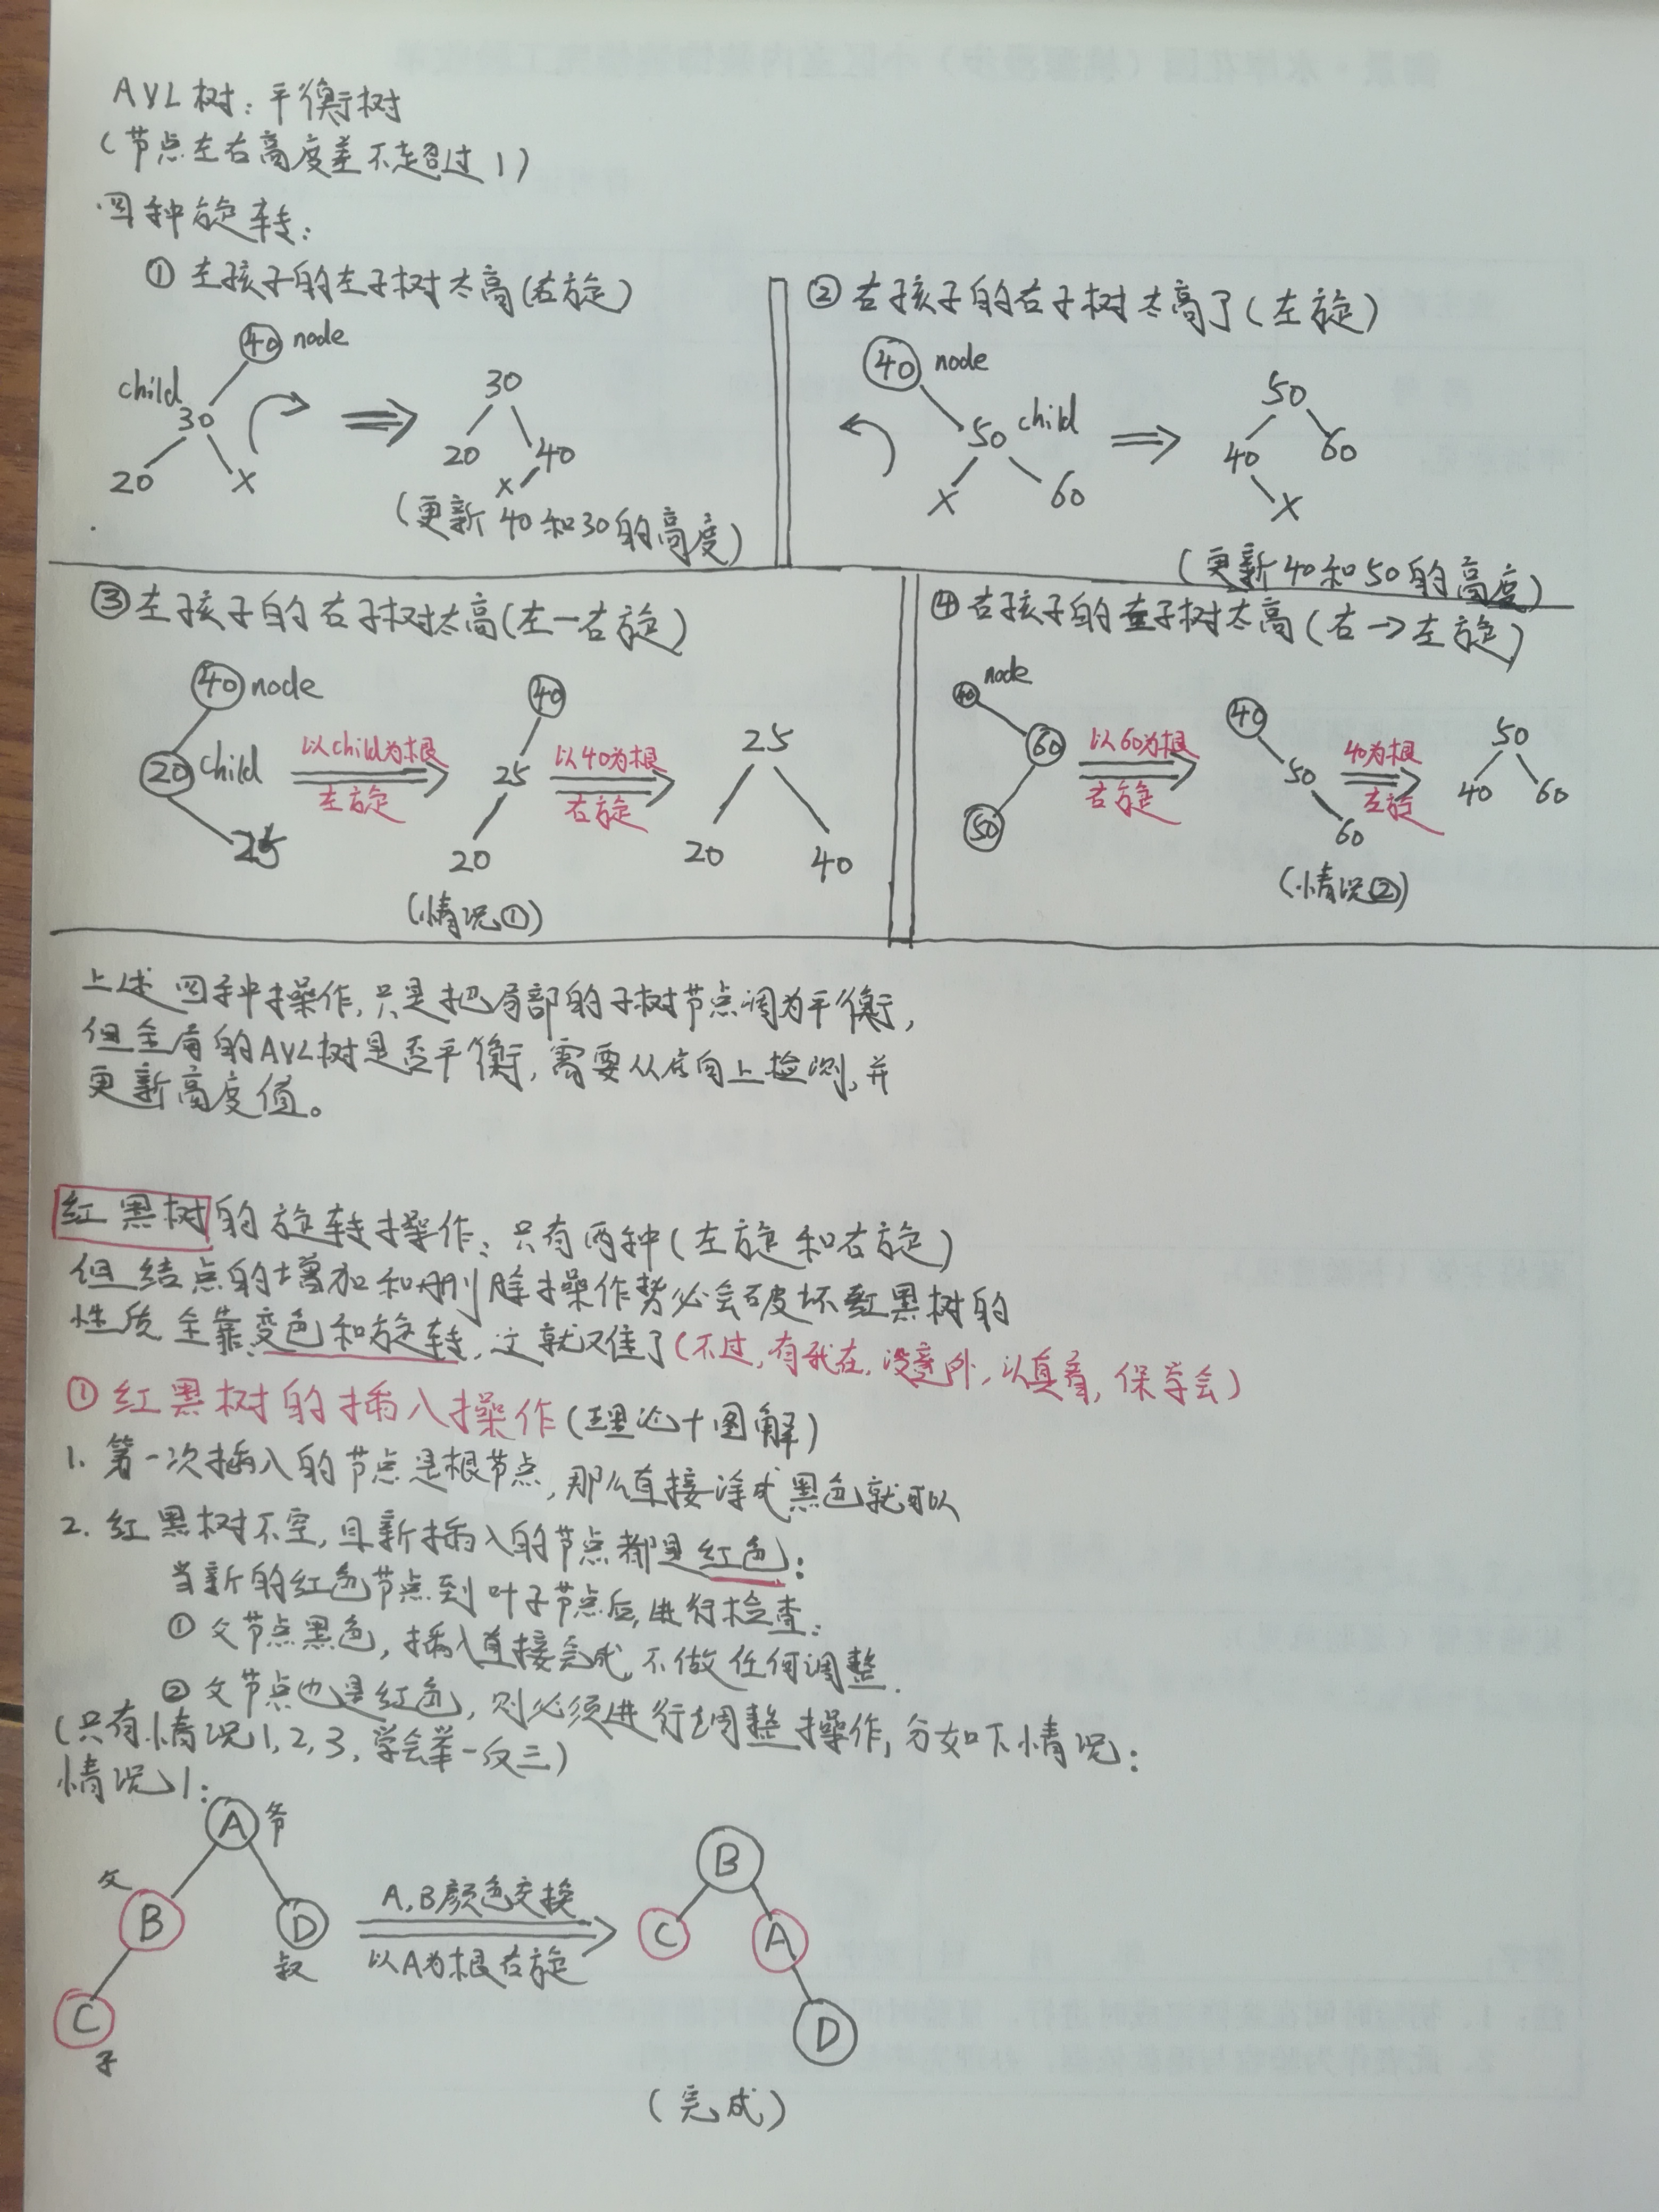 AVL树：平衡树
（节点左右高度差不超过1）
四种旋转：
① 左孩子的左子树太高（右旋）
40 node
child
30
20
X
30
20
40
X
（更新40和30的高度）
② 右孩子的右子树太高了（左旋）
40 node
50 child
X
60
50
40
60
X
（更新40和50的高度）
③ 左孩子的右子树太高（左—右旋）
40 node
20 child
25
以child为根
左旋
40
25
20
（情况①）
以40为根
右旋
25
20
40
④ 右孩子的左子树太高（右→左旋）
node
40
60
50
以60为根
右旋
40
50
60
（情况②）
40为根
左旋
50
40
60
上述四种操作，只是把局部的子树节点调为平衡，
但全局的AVL树是否平衡，需要从底向上检测，并
更新高度值。
红黑树的旋转操作：只有两种（左旋和右旋）
但结点的增加和删除操作势必会破坏红黑树的
性质，全靠变色和旋转，这就又难了（不过，有我在，没意外，认真看，保学会）
① 红黑树的插入操作（理论+图解）
1. 第一次插入的节点是根节点，那么直接涂成黑色就可以
2. 红黑树不空，且新插入的节点都是红色：
当新的红色节点到叶子节点后，进行检查：
① 父节点黑色，插入直接完成，不做任何调整.
② 父节点也是红色，则必须进行调整操作，分如下情况：
（只有情况1,2,3，学会举一反三）
情况1：
A 爷
父
B
D
叔
C
子
A,B颜色交换
以A为根右旋
B
C
A
D
（完成）